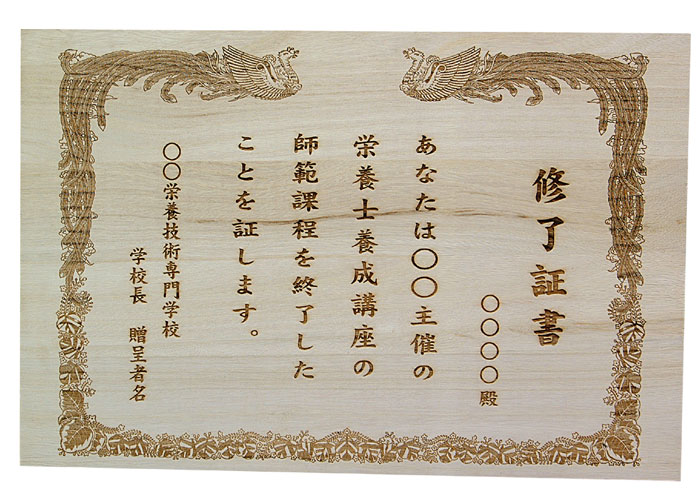 修了証書
〇〇〇〇殿
あなたは〇〇主催の
栄養士養成講座の
師範課程を終了した
ことを証します。
〇〇栄養技術専門学校
学校長 贈呈者名